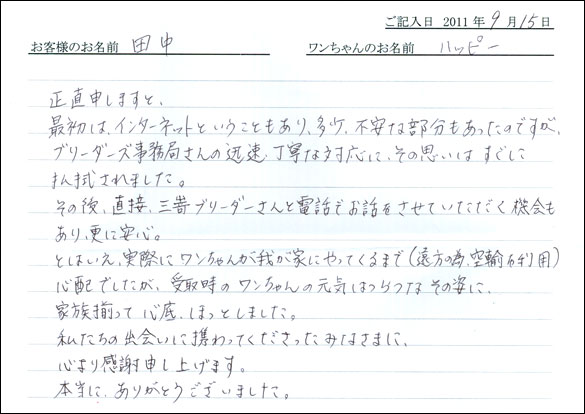 ご記入日 2011年9月15日
お客様のお名前 田中 ワンちゃんのお名前 ハッピー
正直申しますと、
最初は、インターネットということもあり、多少、不安な部分もあったのですが、
ブリーダーズ事務局さんの迅速、丁寧な対応に、その思いは すぐに
払拭されました。
その後、直接、三嵜ブリーダーさんと電話でお話をさせていただく機会も
あり、更に安心。
とはいえ、実際にワンちゃんが我が家にやってくるまで(遠方の為、空輸を利用)
心配でしたが、受取時のワンちゃんの元気はつらつなその姿に、
家族揃って心底、ほっとしました。
私たちの出会いに携わってくださったみなさまに、
心より感謝申し上げます。
本当に、ありがとうございました。